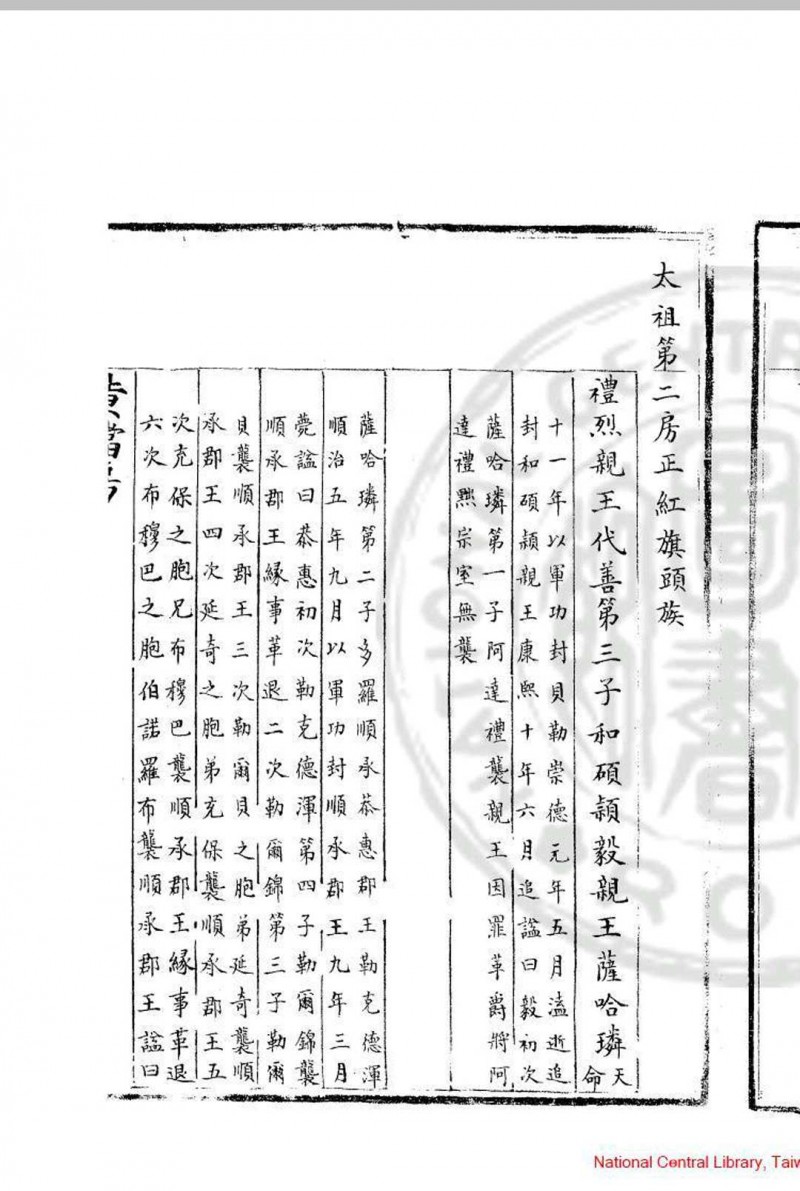 太祖第二房正紅旗頭族
禮烈親王代善第三子和碩潁毅親王薩哈璘天命
十一年以軍功封貝勒崇德元年五月溘逝追
封和碩潁親王康熙十年六月追諡曰毅初次
薩哈璘第一子阿達禮襲親王因罪革爵將阿
達禮黜宗室無襲
薩哈璘第二子多羅順承恭惠郡王勒克德渾
順治五年九月以軍功封順承郡王九年三月
薨諡曰恭惠初次勒克德渾第四子勒爾錦襲
順承郡王緣事革退二次勒爾錦第三子勒爾
貝襲順承郡王三次勒爾貝之胞弟延奇襲順
承郡王四次延奇之胞弟充保襲順承郡王五
次充保之胞兄布穆巴襲順承郡王緣事革退
六次布穆巴之胞伯諾羅布襲順承郡王諡曰
National Central Library, Taiw